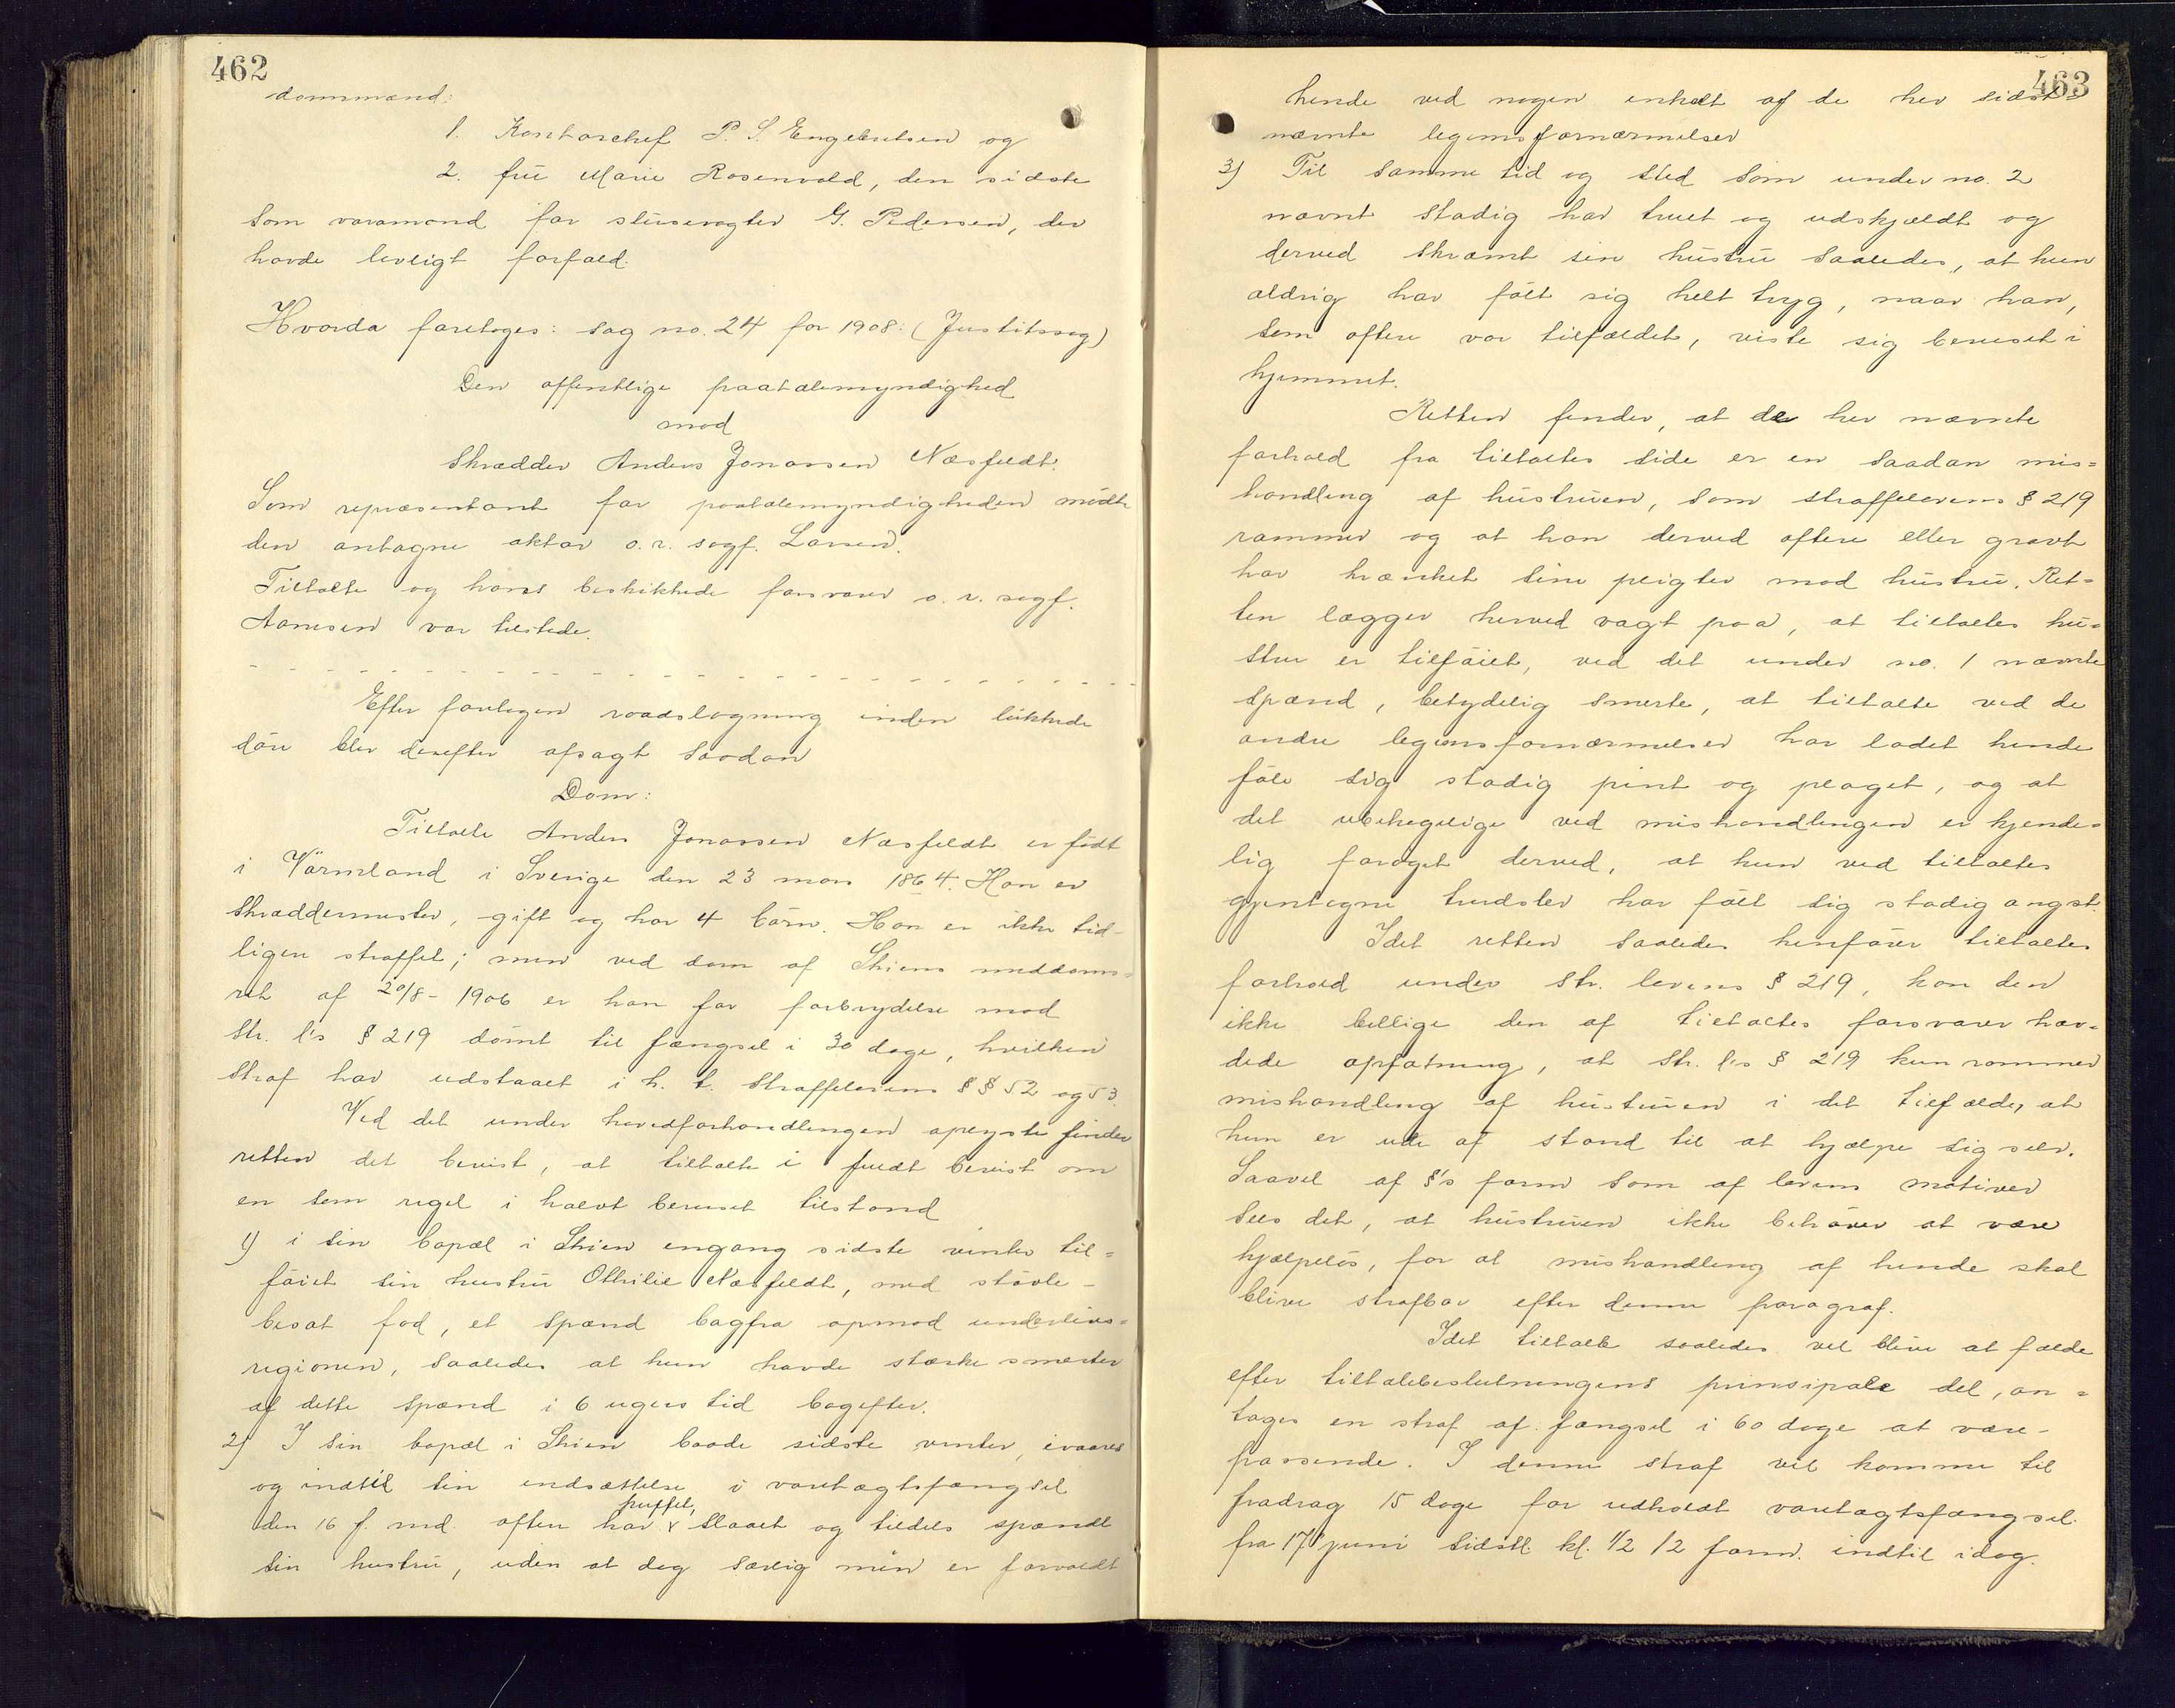 462
dommænd:
1. Kontorchef P. S. Engebretsen og
2. frü Marie Rosenvold, den sidste
som varamand for slüsevogter G. Pedersen, der
havde lovligt forfald.
Hvorda foretoges: sag no. 24 for 1908: (Justitssag)
Den offentlige paatalemyndighed
mod
Skrædder Anders Jonassen Næsfeldt.
Som repræsentant for paatalemyndigheden mödte
den antagne aktor o.r. sagf. Larsen.
Tiltalte og hans beskikkede forsvarer o.r. sagf.
Aanesen var tilstede.
Efter foretagen raadslagning inden lükkede
döre blev derefter afsagt saadan
Dom:
Tiltalte Anders Jonassen Næsfeldt er födt
i Värmland i Sverige den 23 mars 1864. Han er
skræddermester, gift og har 4 börn. Han er ikke tid-
ligere straffet; men ved dom af Skiens meddoms=
ret af 20/8 - 1906 er han for forbrydelse mod
Str. l's § 219 dömt til fængsel i 30 dage, hvilken
straf har udstaaet i h. t. Straffelovens §§ 52 og 53.
Ved det under hovedforhandlingen oplyste finder
retten det bevist, at tiltalte i fuldt bevist om
en som regel i halvt beruset tilstand
1) i sin bopæl i Skien engang sidste vinter til=
föiet sin hustrü Othilie Næsfeldt, med stövle-
besat fod, et spænd bagfra opmod underlivs=
regionen, saaledes at hun havde stærke smerter
af dette spænd i 6 ugers tid bagefter.
2) I sin bopæl i Skien baade sidste vinter, ivaares
og indtil sin indsættelse i varetægtsfængsel
den 16 f. md. often har puffet, slaaet og tildels spændt
sin hustrü, uden at dog særlig mén er forvoldt
463
hende ved nogen enkelt af de her sidst=
nævnte legemsfornærmelser
3) Til samme tid og sted som under no. 2
nævnt stadig har truet og udskjældt og
derved skræmt sin hüstrü saaledes, at hun
aldrig har fölt sig helt tryg, naar han,
som oftere var tilfældet, viste sig beruset i
hjemmet.
Retten finder, at de her nævnte
forhold fra tiltaltes side er en saadan mis=
handling af hüstrüen, som straffelovens § 219
rammer og at han derved oftere eller grovt
har krænket sine pligter mod hüstrü. Ret=
ten lægger herved vægt paa, at tiltaltes hü=
stru er tilföiet, ved det under no. 1 nævnte
spænd, betydelig smerte, at tiltalte ved de
andre legemsfornærmelser har ladet hende
föle sig stadig pint og plaget, og at
det ubehagelige ved mishandlingen er kjende=
lig foröget derved, at hun ved tiltaltes
gjentagne trudsler har fölt sig stadig angst.
Idet retten saaledes henförer tiltaltes
forhold under Str. lovens § 219, kan den
ikke billige den af tiltaltes forsvarer hæv=
dede opfatning, at Str. l's § 219 kun rammer
mishandling af hüstrüen i det tilfælde, at
hun er ude af stand til at hjælpe sig selv.
Saavel af §'s form som af lovens motiver
sees det, at hüstrüen ikke behöver at være
hjælpelös, for at mishandling af hende skal
blive strafbar efter denne paragraf.
Idet tiltalte saaledes vil blive at fælde
efter tiltalebeslutningens prinsipale del, an=
tages en straf af fængsel i 60 dage at være
passende. I denne straf vil komme til
fradrag 15 dage for udholdt varetægtsfængsel
fra 17 juni sidstl. kl. 1/2 12 form. indtil idag.